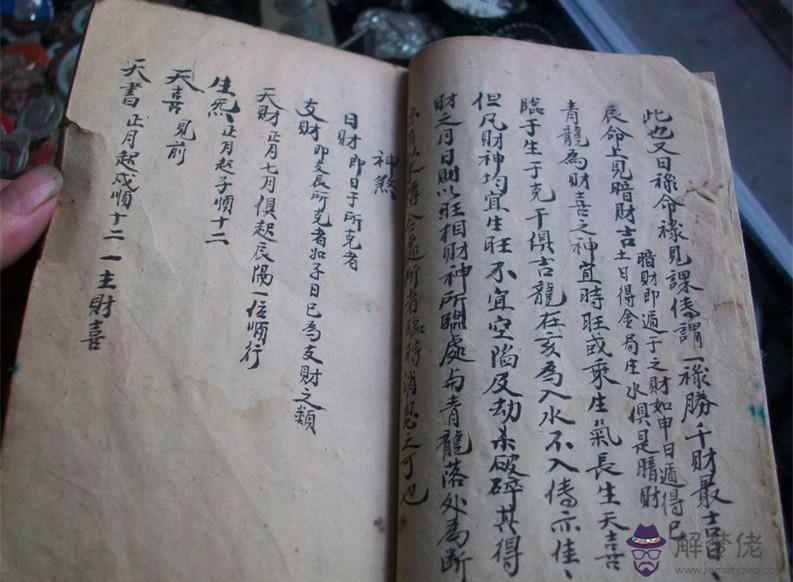 此也又曰祿命祿見課傳謂一祿勝千財最吉日
辰命上見暗財吉
暗財即遁干之財如申日遁得
土日得金局庄水俱是暗財
青龍為財喜之神宜時旺或乘生氣長生天喜
臨于生于克干俱吉龍在亥為入水不入傳亦佳
但凡財神均宜生旺不宜空陷及劫杀破碎其得
財之月日則以旺相財神所臨處与青龍落处為断
所者臨時消息之可也
神煞
日財即日干所克者
支財即支辰所克者如子日巳為支財之類
天財正月七月俱起辰陽一位順行
生炁正月起子順十二
天喜見前
天書正月起戌順十二一主財喜
解梦佬
www.jiemenglao.com